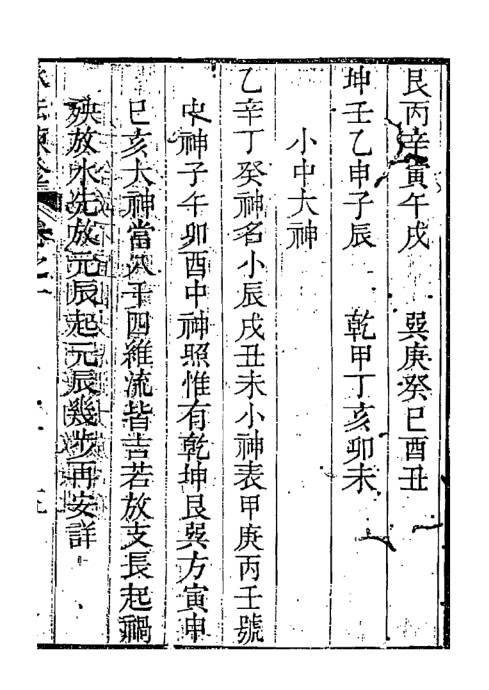 艮丙辛寅午戌　巽庚癸巳酉丑
坤壬乙申子辰　乾甲丁亥卯未
小中大神
乙辛丁癸神名小辰戌丑未小神表甲庚丙壬號
中神子午卯酉中神照惟有乾坤艮巽方寅申
巳亥大神當八干四維流皆吉若放支長起禍
殃放水先放元辰起元辰幾步再安詳
卷之一